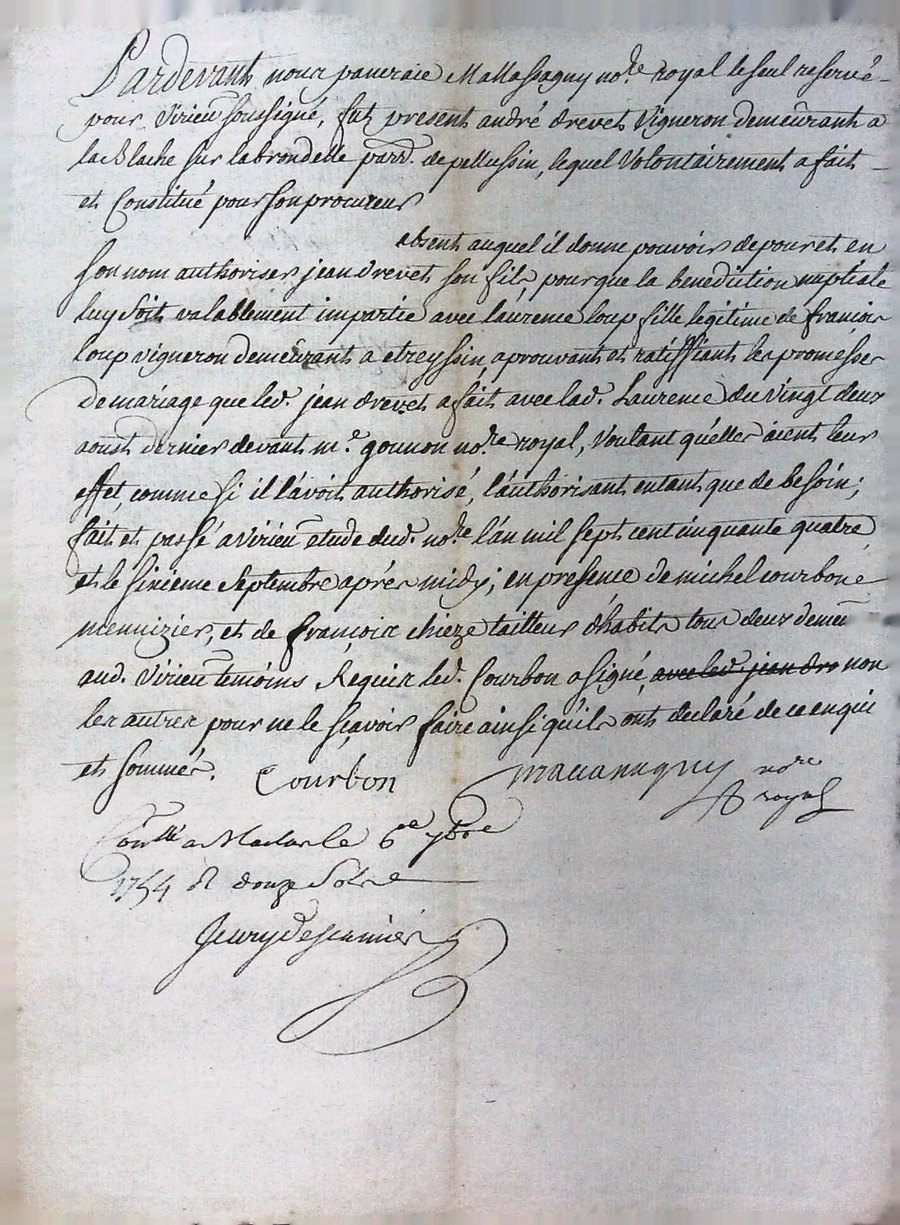 Pardevant nous pancrace Massassagny no.re royal le seul reservé
pour Virieu soussigné, fut present andré drevet Vigneron demeurant a
la Blache sur labrondelle parr. de pellussin, lequel Volontairement a fait
et Constitué pour son procureur
absent auquel il donne pouvoir de pour et en
son nom authoriser jean drevet son fils, pour que la benediction nuptiale
luy soit valablement impartie avec laurence loup fille legitime de françois
loup vigneron demeurant a etreyssin, aprouvant et ratiffiant les promesses
de mariage que led. jean drevet a fait avec lad. Laurence du vingt deux
aoust dernier devant m.e gounon no.re royal, Voulant qu'elles aient leur
effet, comme si il l'avoit authorisé, l'authorisant entant que de besoin;
fait et passé a Virieu etude dud. no.re l'an mil sept cent cinquante quatre
et le sixieme Septembre aprés midy; en presence de michel courbon
menuizier, et de françois chieze tailleur d'habits tous deux demeu
aud. Virieu temoins Requis led. Courbon a signé, avec led. jean dre non
les autres pour ne le sçavoir faire ainsi qu'ils ont declaré de ce enquis
et sommés.
Courbon no.re
royal
Con.llé a le 6e 7bre
1754 R douze Sols